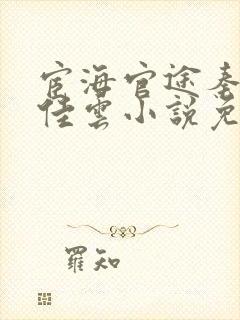 宦海官途秦
佳雲小說免
羅知